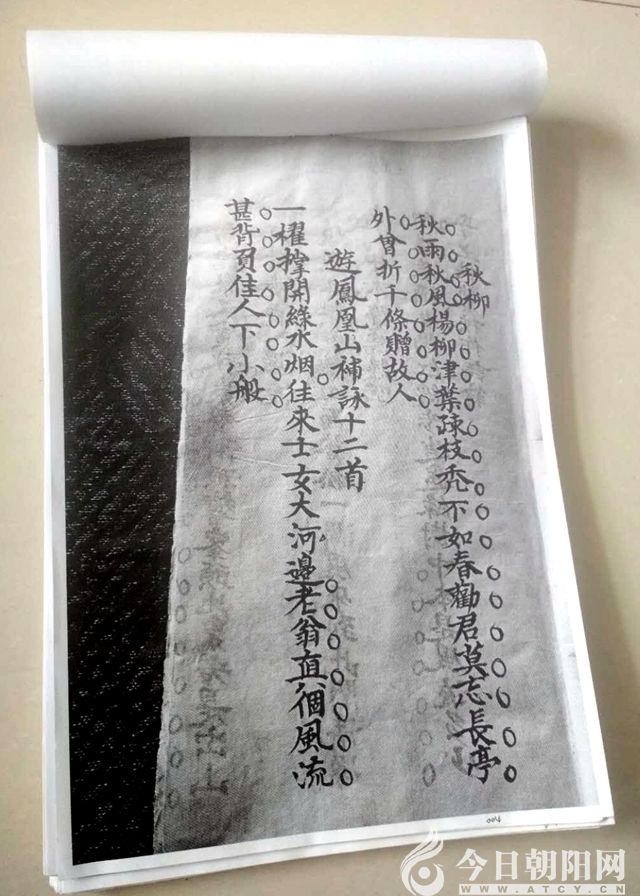 秋柳
秋雨秋風楊柳津葉疎枝禿不如春勸君莫忘長亭
外曾折千條贈故人
遊鳳凰山補詠十二首
一櫂撑開綠水烟往來士女大河邊老翁直個風流
甚背負佳人下小船
004
今日朝阳网
WWW.ATCY.CN